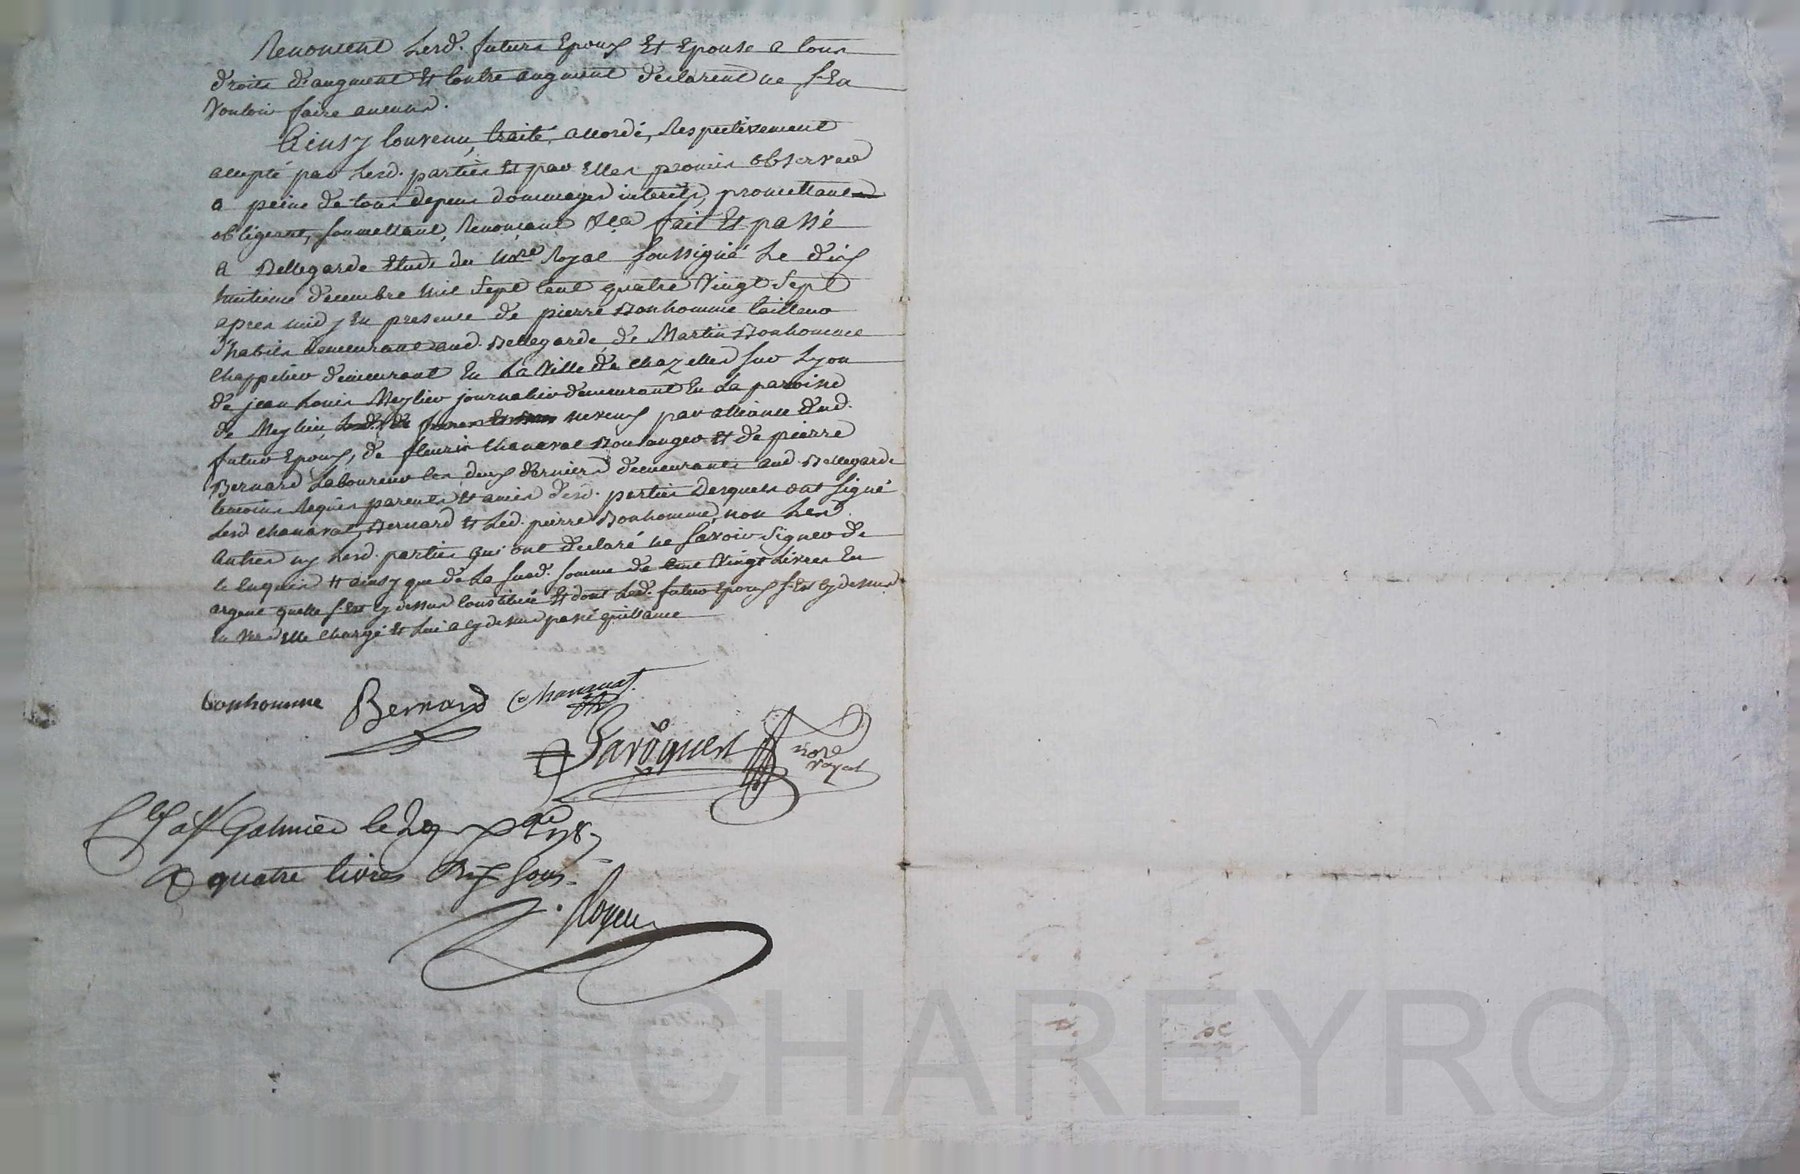 Renoncent Lesd. futurs Epoux Et Epouse a tous
droits d'augment Et Contre augment déclarent ne s'En
Vouloir faire aucuns.
Ainsy Convenu, traité, accordé, Respectivement
accepté par Lesd. parties Et par Elles promis observer
a peine de tous depens dommages interets, promettant
obligeant, soumettant, Renonçant &ca fait Et passé
a Bellegarde Etude du nore Royal soussigné Le dix
huitieme decembre mil sept Cent quatre Vingt Sept
apres midy En presence de pierre Bonhomme tailleur
d'habits demeurant aud. Bellegarde, de Martin Bonhomme
Chappelier demeurant En La Ville de Chazelles sur Lyon
de jean Louis Meylieu journalier demeurant En La paroisse
de Meylieu, neveux par alliance dud.
futur Epoux, de fleurie Chanavat Boulanger Et de pierre
Bernard Laboureur les deux derniers demeurants aud. Bellegarde
temoins Requis parents Et amis desd. parties Lesquels ont signé
Lesd Chanavat, Bernard Et Led. pierre Bonhomme, non Lesd.
autres ny Lesd. parties qui ont declaré ne savoir signer de
ce Enquis Et ainsy que de La susd. somme de Cent Vingt Livres En
argent quelle s'Est cy dessus Constituée Et dont Led. futur Epoux s'Est cy dessus
En Vers Elle chargé Et lui a cy dessus passé quittance
bonhomme Bernard Chanavat
nore royal
a St Galmier le 29 xbre 1787
R quatre livres dix sous
Royer
CHAREYRON